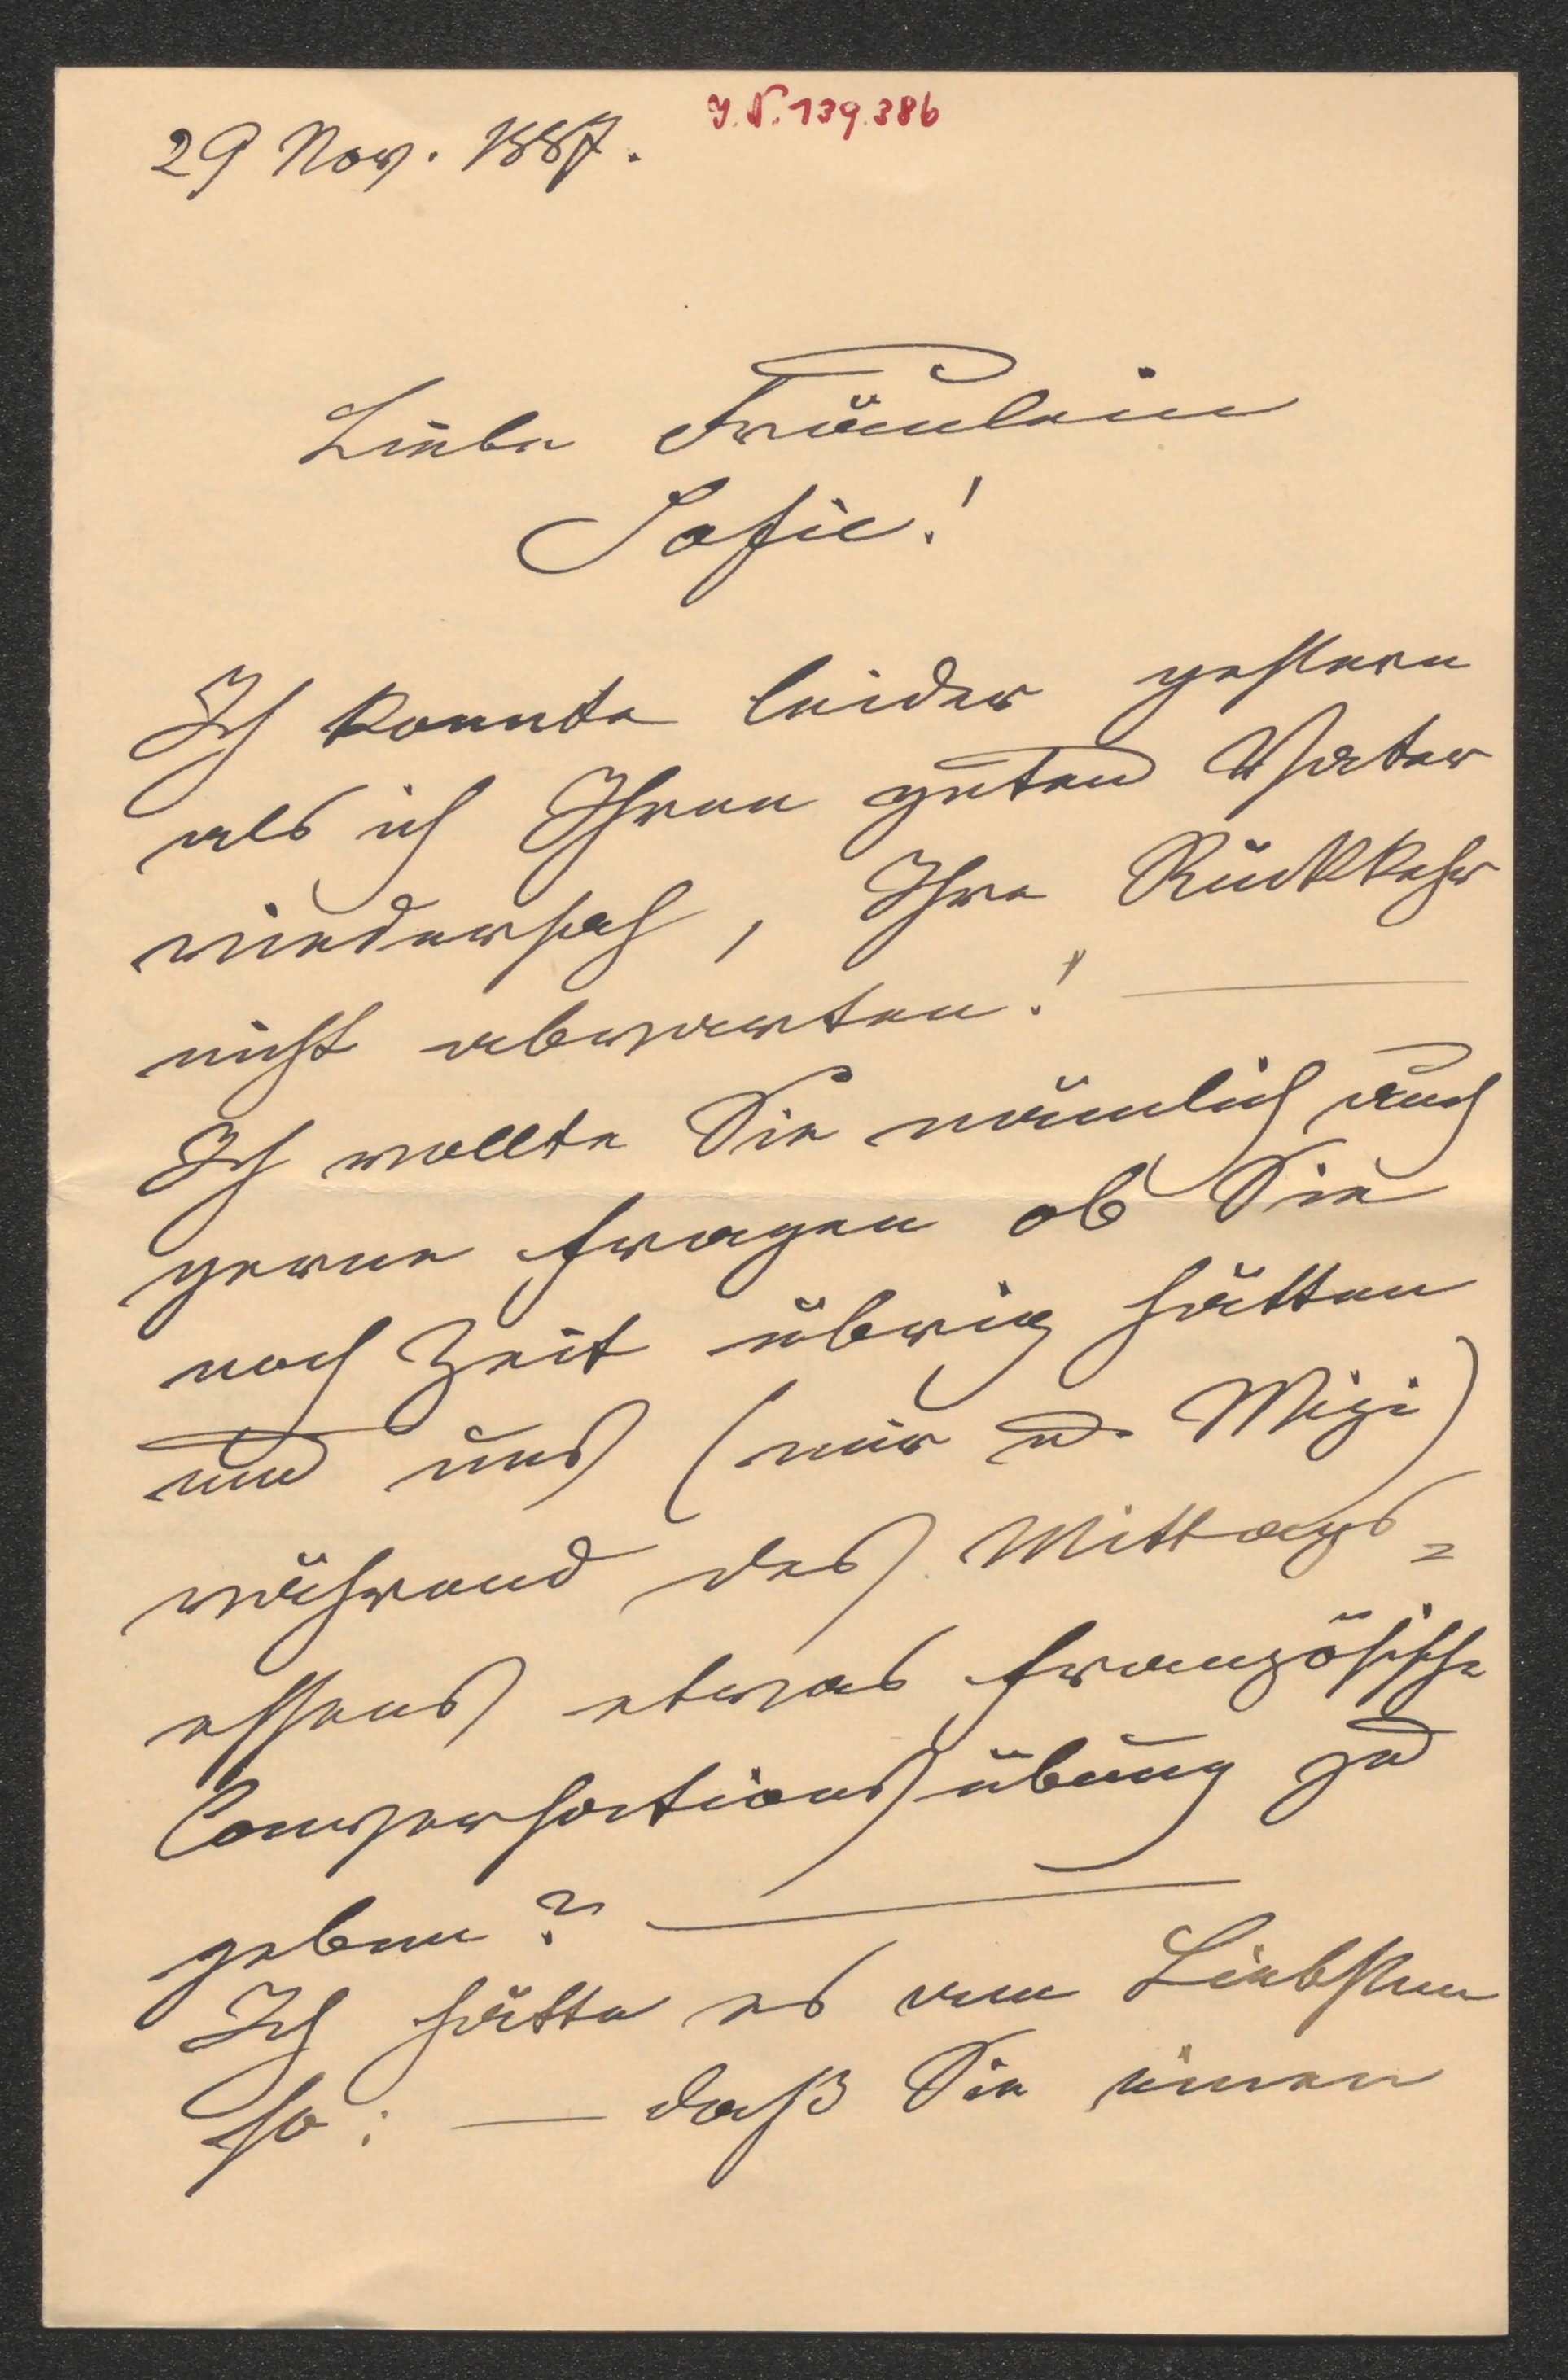 J.N. 139.386
29 Nov. 1887.
Liebe Fräulein
Sofie!
Ich konnte leider gestern
als ich Ihren guten Vater
wiedersah, Ihre Rückkehr
nicht abwarten! —
Ich wollte Sie nämlich auch
gerne fragen ob Sie
noch Zeit übrig hätten
und uns (mir u. Mizi)
während des Mittags=
essens etwas französische
Conversationsübung zu
geben? —
Ich hätte es am Liebsten
so: — daß Sie einen